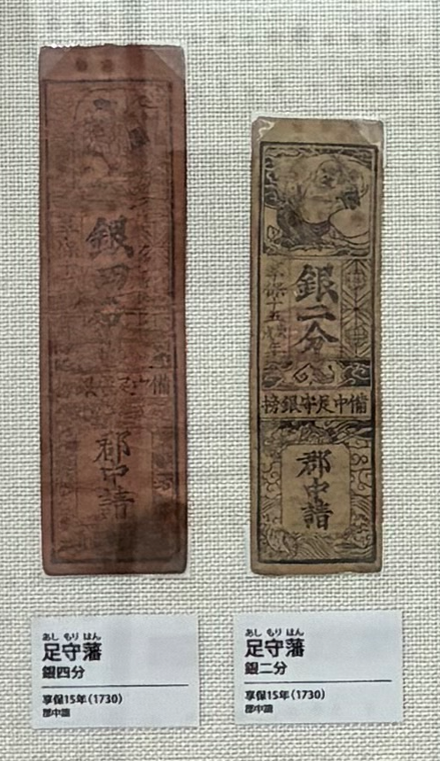 銀四分
郡中請
銀二分
享保十五
備中足守銀札
郡中請
あし もり はん
足守藩
銀四分
享保15年(1730)
郡中請
あし もり はん
足守藩
銀二分
享保15年(1730)
郡中請